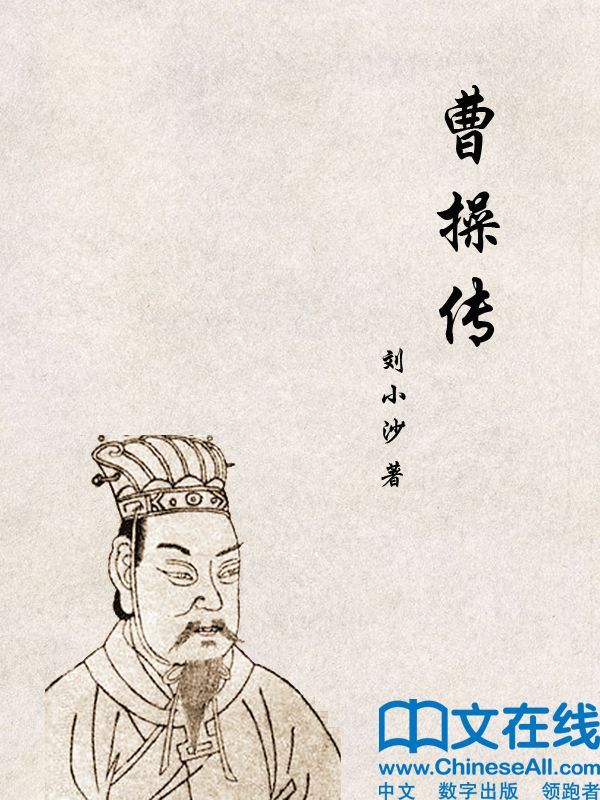 曹操传
刘小沙 著
中文在线
www.ChineseAll.com
中文 数字出版 领跑者